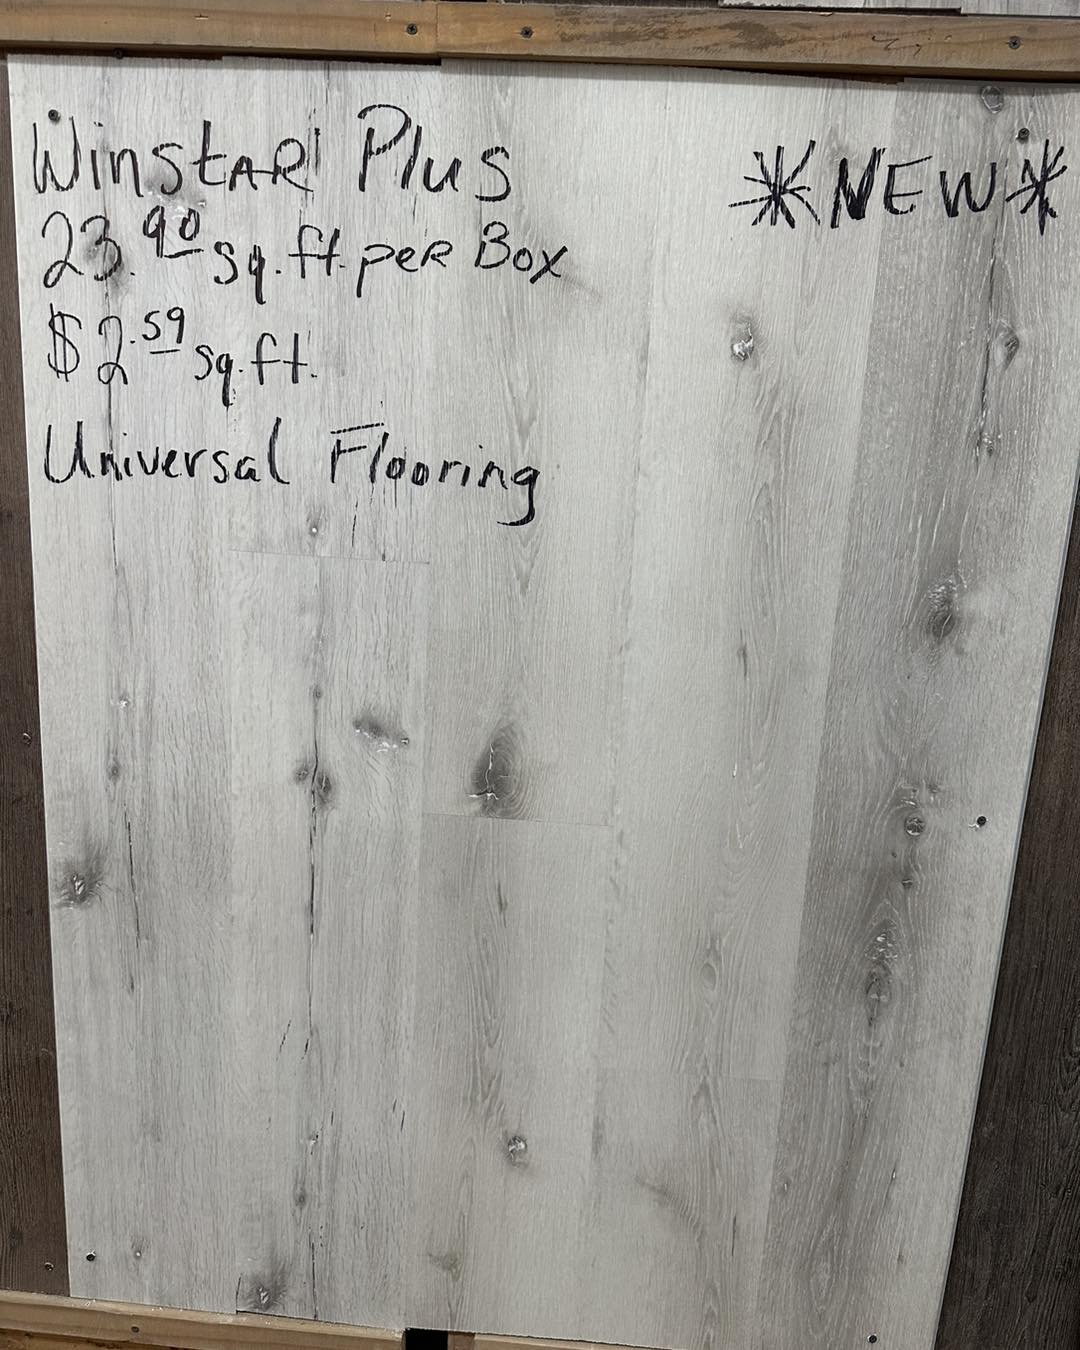 Winstar Plus
*NEW*
23.90 sq.ft. per Box
$2.59 sq.ft.
Universal Flooring